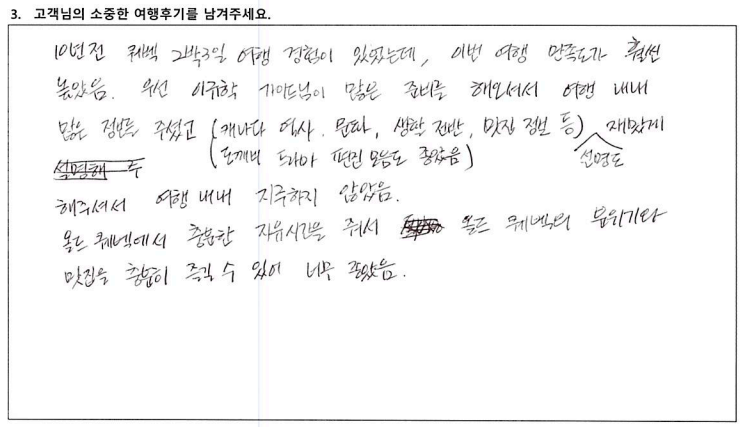 3. 고객님의 소중한 여행후기를 남겨주세요.
10년전 퀘벡 2박3일 여행 경험이 있었는데, 이번 여행 만족도가 훨씬
높았음. 우선 이규학 가이드님이 많은 준비를 해오셔서 여행 내내
많은 정보를 주셨고 (캐나다 역사. 문화, 생활 전반, 맛집 정보 등) 재밌게
(도깨비 드라마 편집 모음도 좋았음) 설명도
설명해 주
해주셔서 여행 내내 지루하지 않았음.
올드 퀘벡에서 충분한 자유시간을 줘서 올드 퀘벡의 분위기와
맛집을 충분히 즐길 수 있어 너무 좋았음.